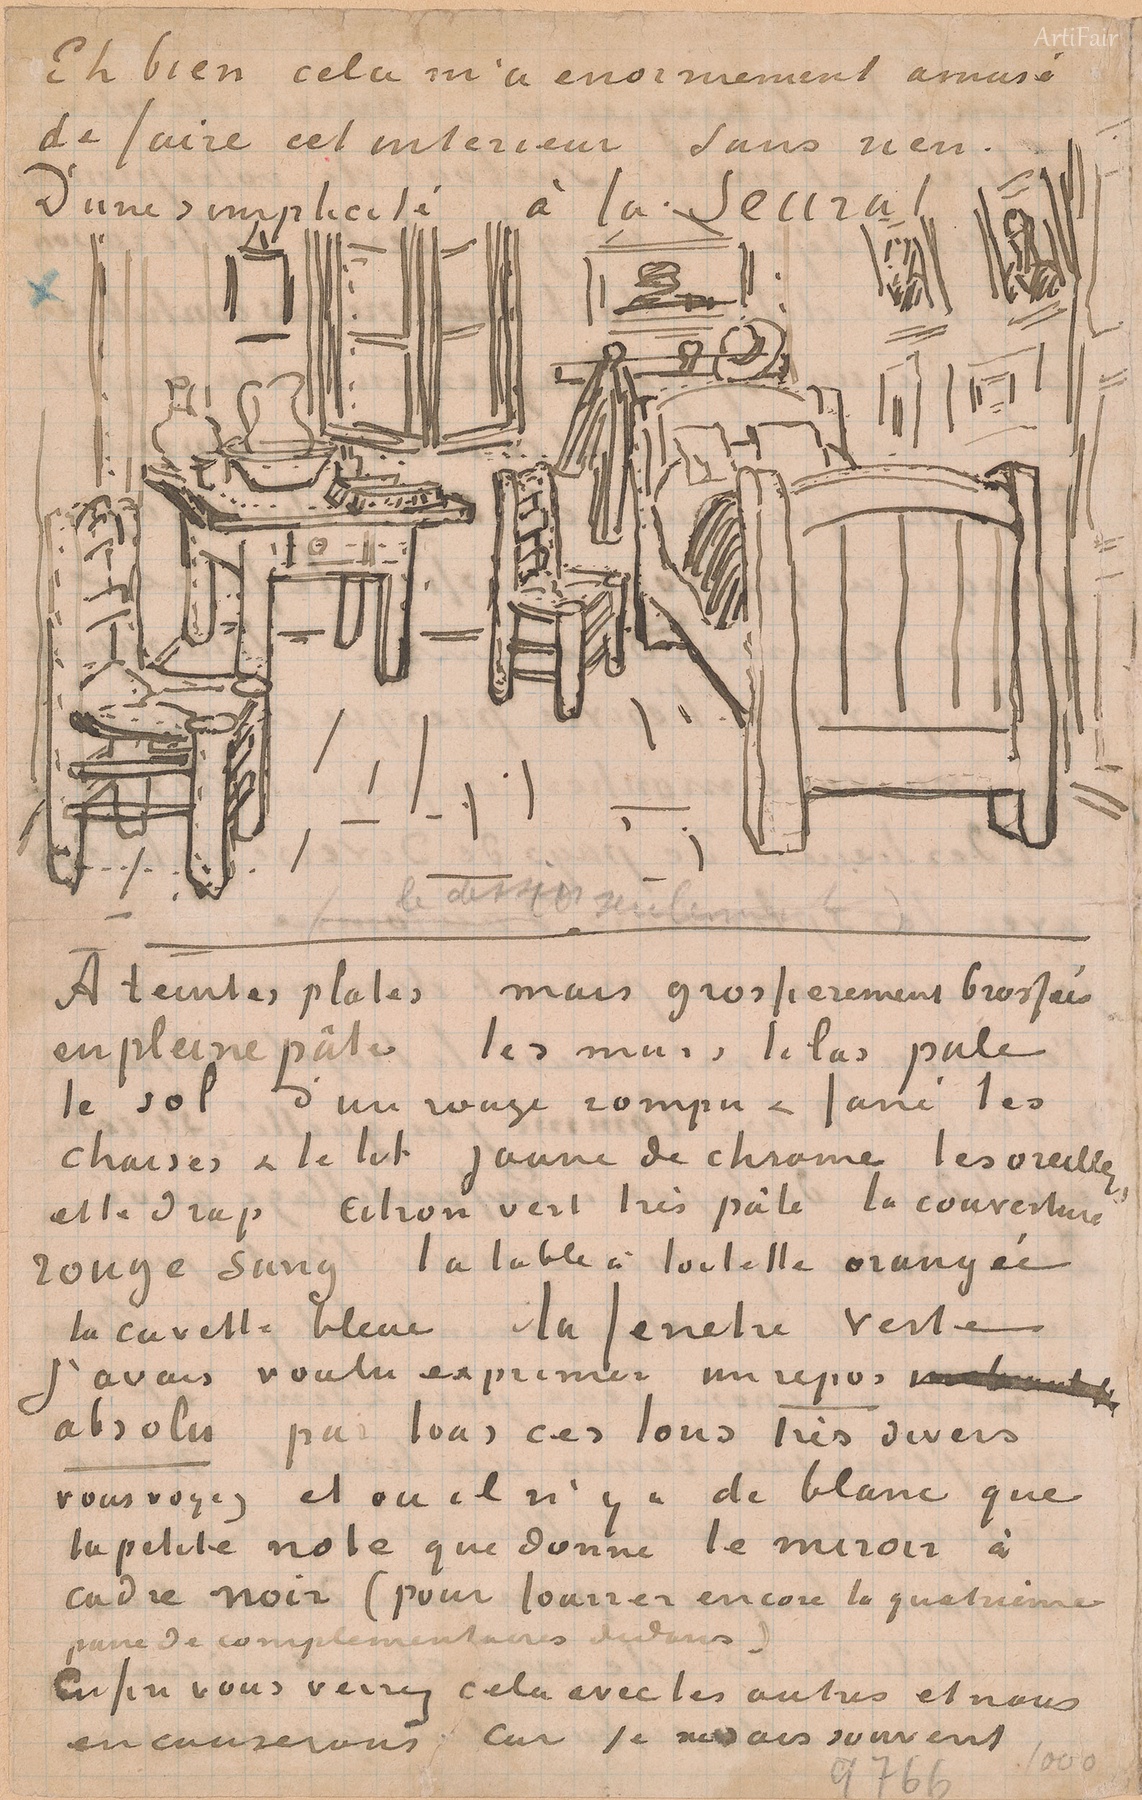 ArtiFair
Eh bien cela m'a enormement amusé
de faire cet interieur sans rien.
D'une simplicité à la Seurat
le dessin seulement
A teintes plates mais grossierement brossées
en pleine pâte les murs lilas pale
le sol d'un rouge rompu & fané les
chaises & le lit jaune de chrome les oreillers
et le drap citron vert très pâle la couverture
rouge sang la table à toilette orangée
la cuvette bleue la fenetre verte
J'avais voulu exprimer un repos
absolu par tous ces tons très divers
vous voyez et ou il n'y a de blanc que
la petite note que donne le miroir à
cadre noir (pour fourrer encore la quatrieme
paire de complementaires dedans)
Enfin vous verrez cela avec les autres et nous
en causerons car je ne sais souvent
9766 1000